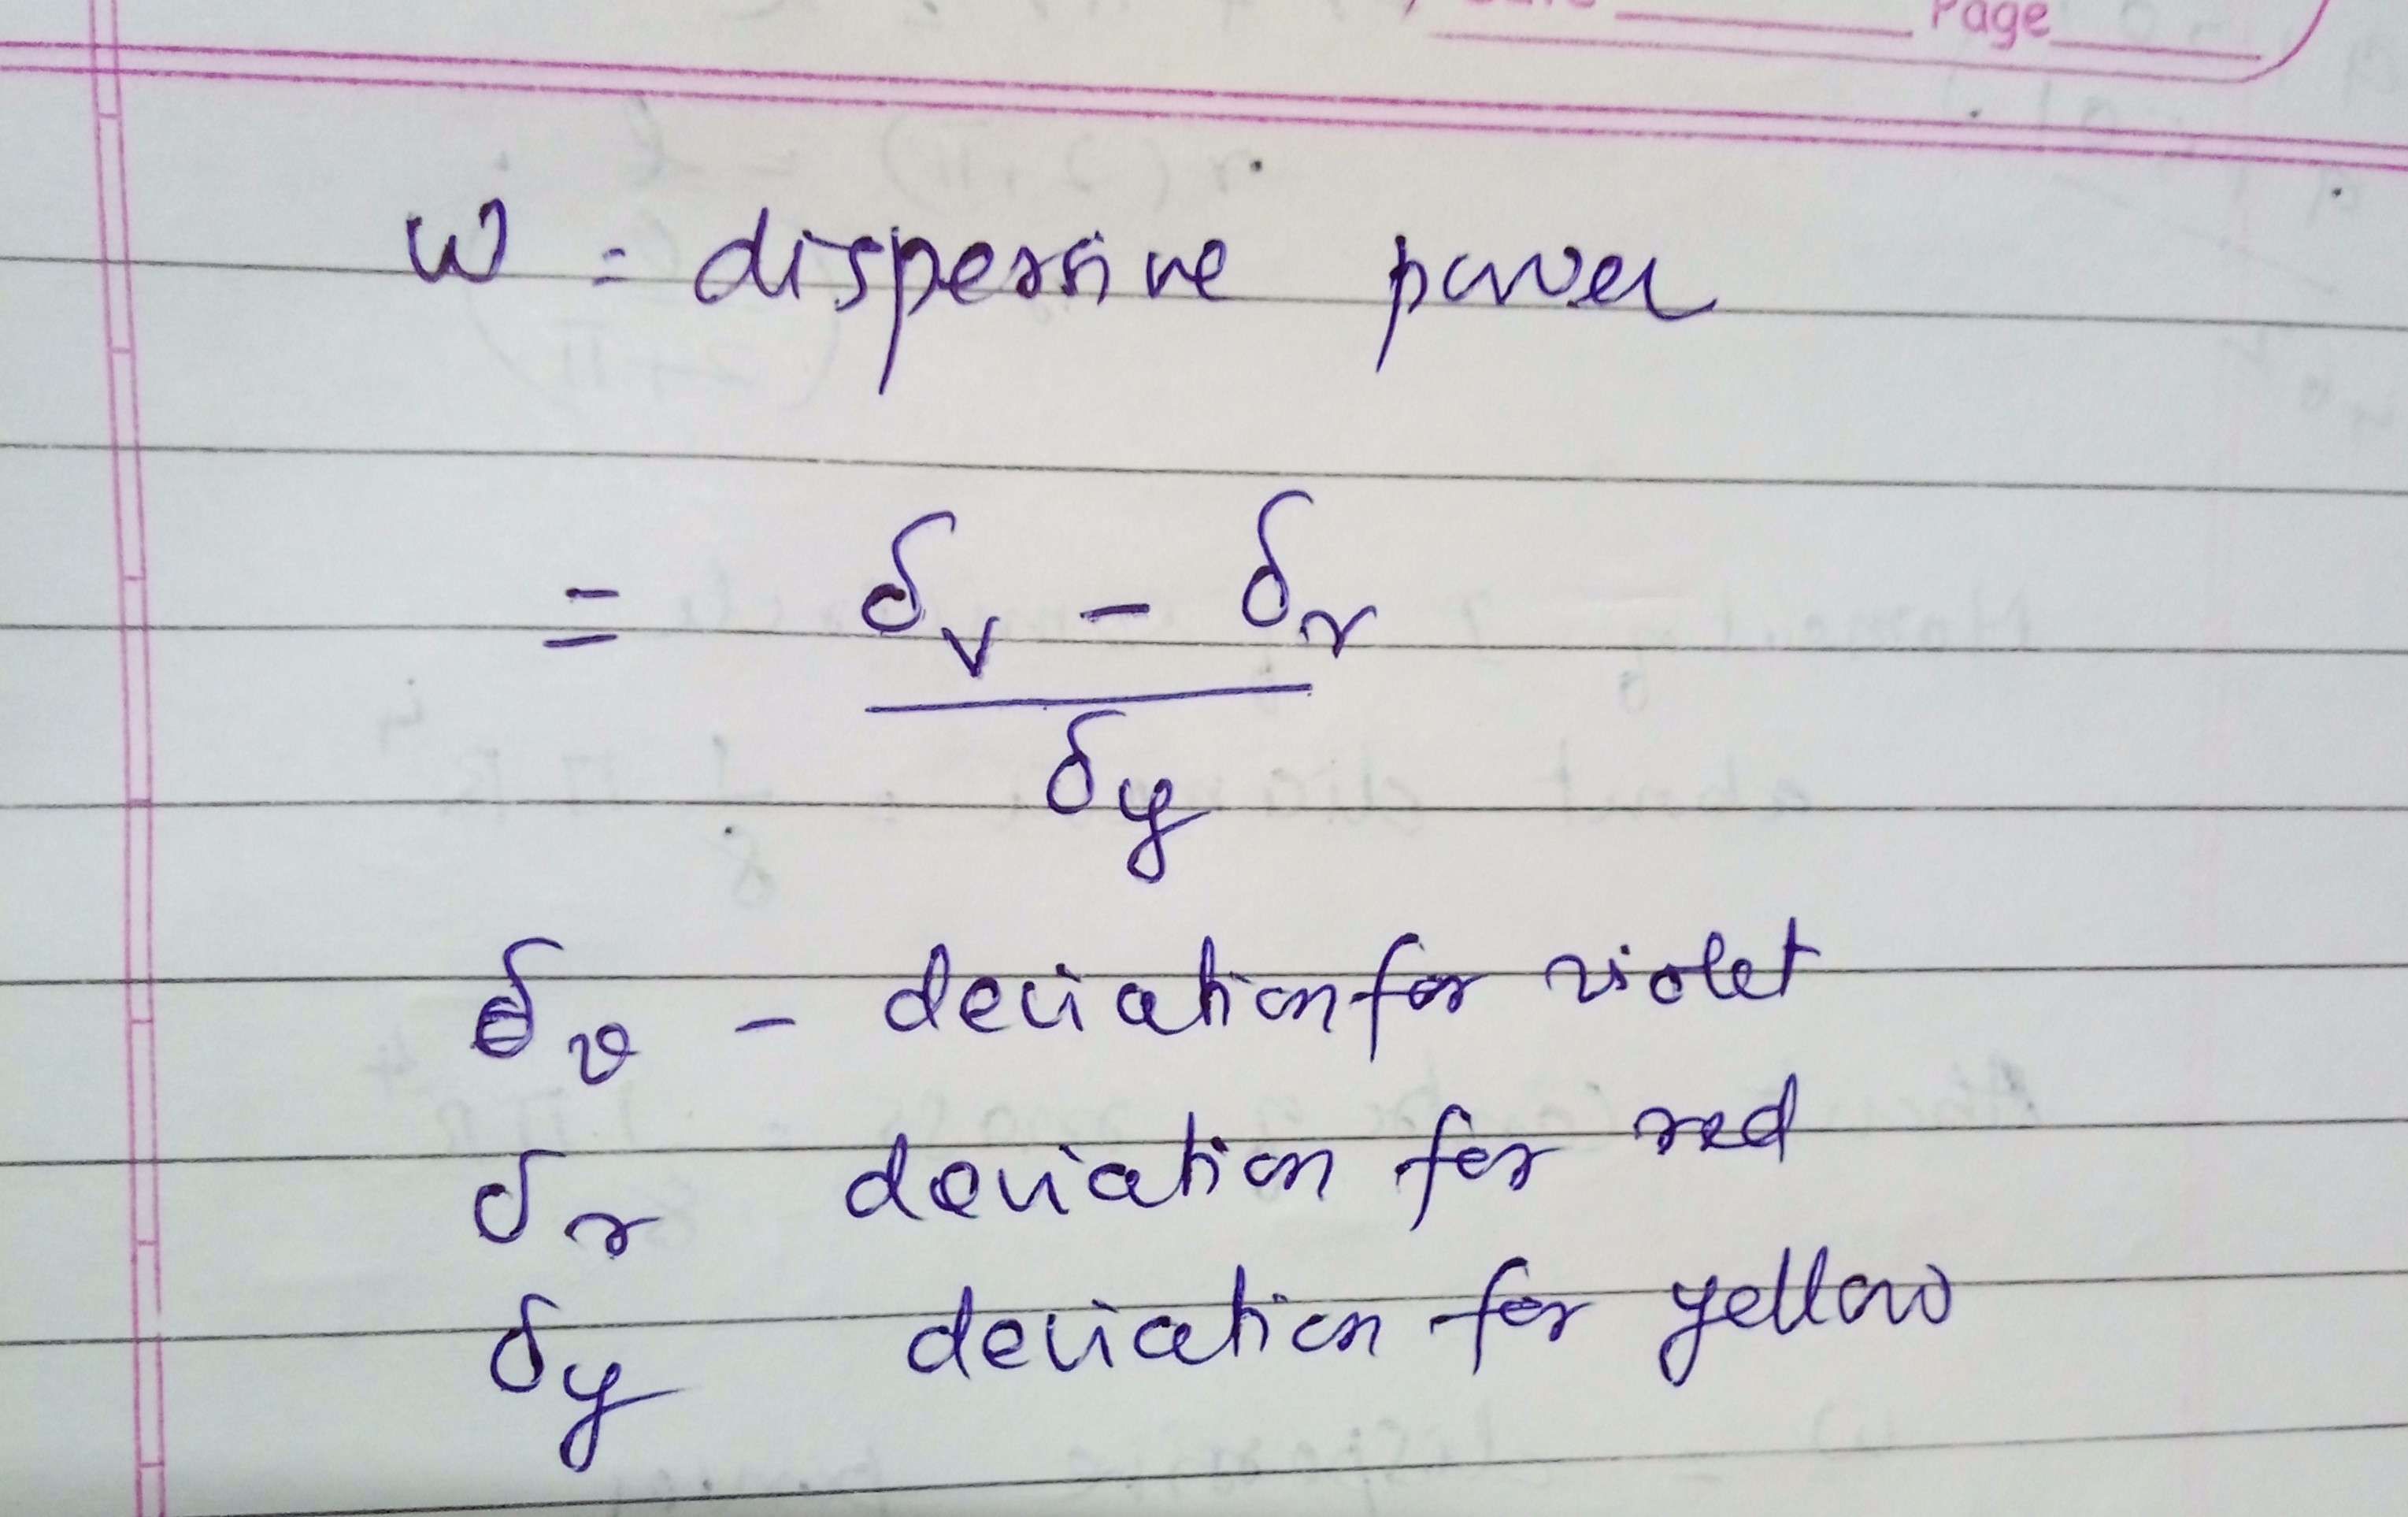 Page
ω = dispersive power
= δv - δr
δy
δv - deviation for violet
δr deviation for red
δy deviation for yellow